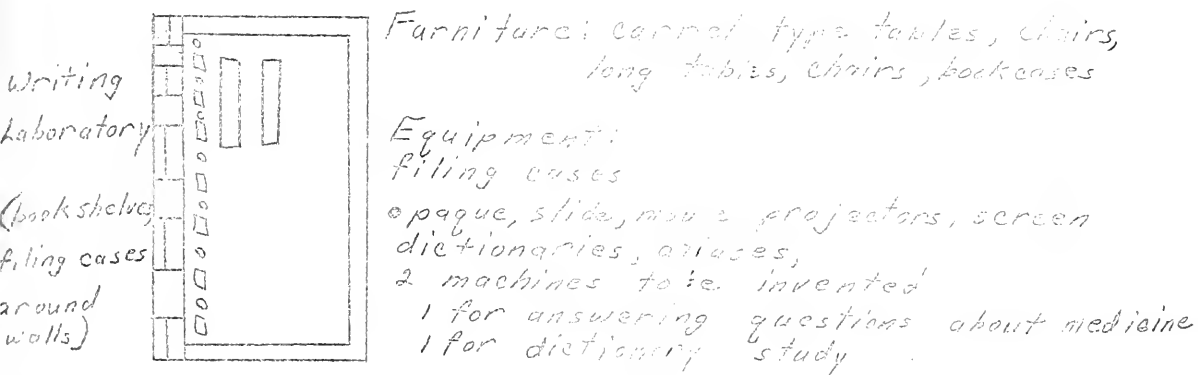 Writing
Laboratory
(book shelves,
filing cases
around
walls)
Furniture: carrel type tables, chairs,
long tables, chairs, bookcases
Equipment:
filing cases
opaque, slide, movie projectors, screen
dictionaries, atlases,
2 machines to be invented
1 for answering questions about medicine
1 for dictionary study